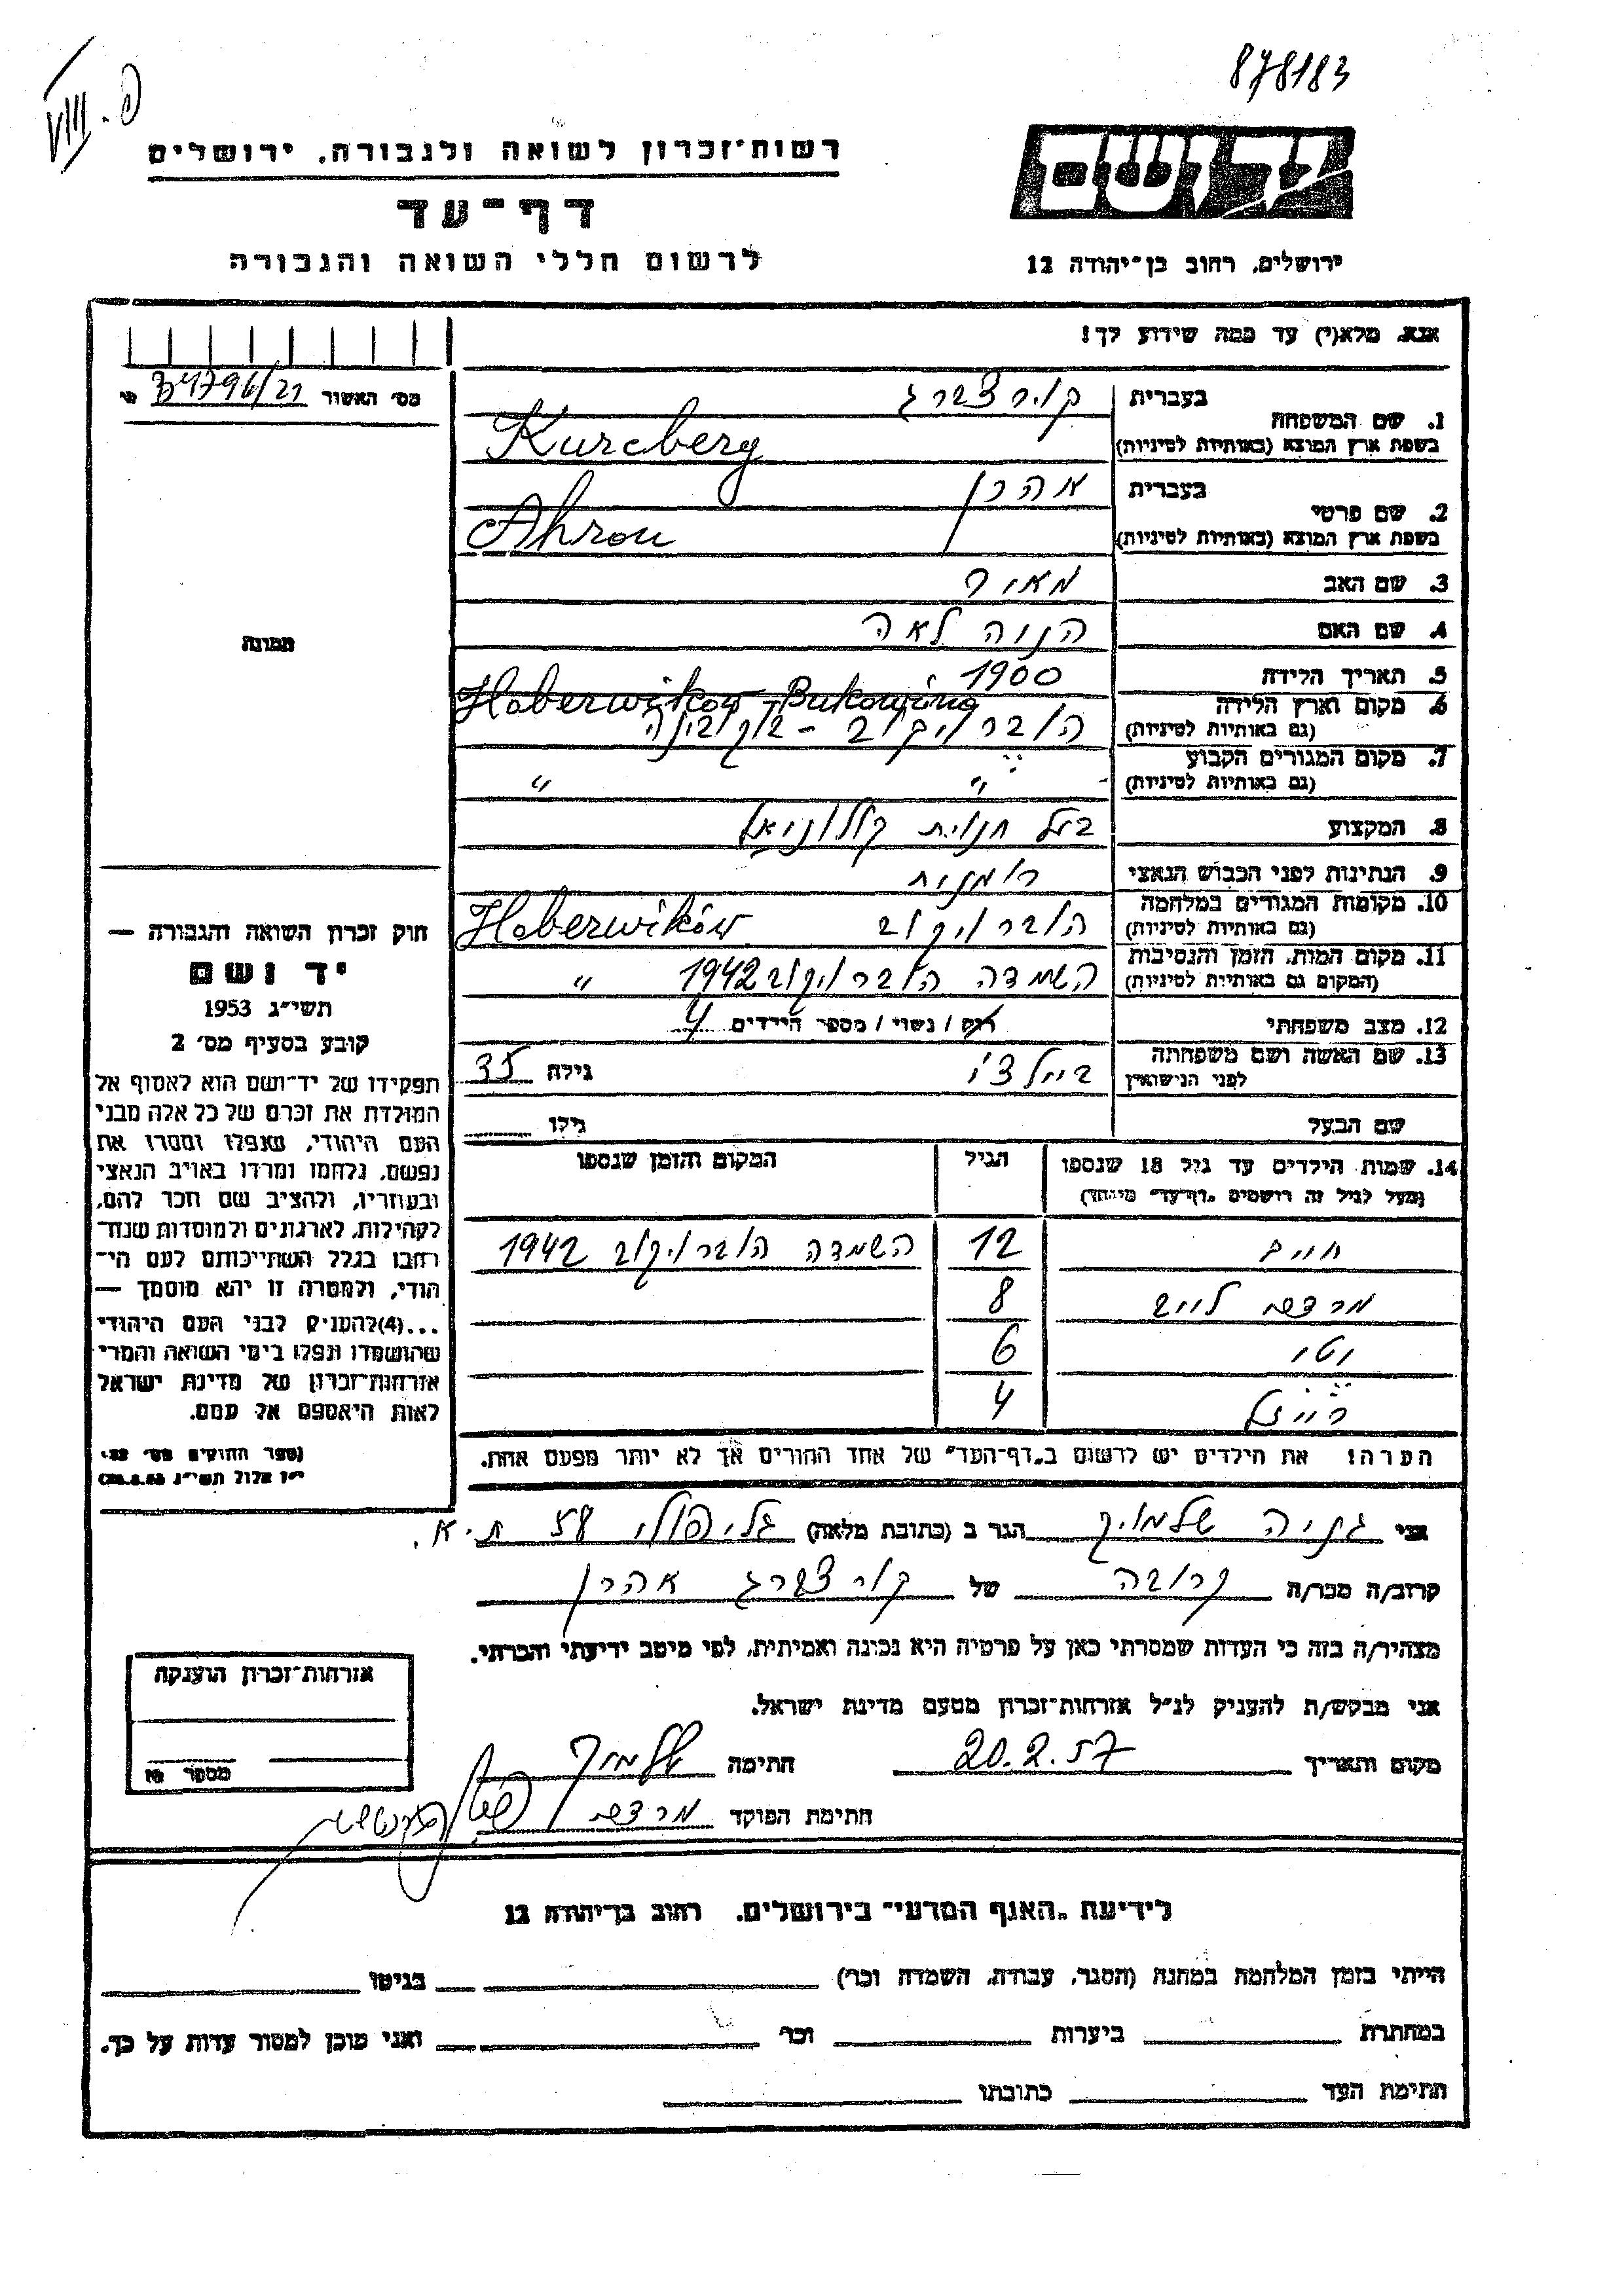 878183
VIII. פ
יד ושם
רשות־זכרון לשואה ולגבורה, ירושלים
דף־עד
לרשום חללי השואה והגבורה
ירושלים, רחוב בן־יהודה 12
אנא, מלא(י) עד כמה שידוע לך!
מס' האשור
בעברית קורצברג
1. שם המשפחה
בשפת ארץ המוצא (באותיות לטיניות) Kurcberg
בעברית אהרן
2. שם פרטי
בשפת ארץ המוצא (באותיות לטיניות) Ahron
3. שם האב מאיר
4. שם האם הנוה לאה
5. תאריך הלידה 1900
6. מקום וארץ הלידה Haberwików Bukowina
(גם באותיות לטיניות) הוברויקוב - בוקובינה
7. מקום המגורים הקבוע
(גם באותיות לטיניות) " "
8. המקצוע בעל חנות קולוניאל
9. הנתינות לפני הכבוש הנאצי רומנית
10. מקומות המגורים במלחמה
(גם באותיות לטיניות) הוברויקוב Haberwików
11. מקום המות, הזמן והנסיבות
(המקום גם באותיות לטיניות) השמדה הוברויקוב 1942 "
12. מצב משפחתי רוק / נשוי / מספר הילדים 4
13. שם האשה ושם משפחתה
לפני הנישואין ביילצי גילה 35
שם הבעל גילו
14. שמות הילדים עד גיל 18 שנספו הגיל המקום והזמן שנספו
(מעל לגיל זה רושמים „דף־עד" מיוחד)
חיים 12 השמדה הוברויקוב 1942
מרדכי לייב 8
וטי 6
רייזל 4
הערה! את הילדים יש לרשום ב„דף־העד" של אחד ההורים אך לא יותר מפעם אחת.
תמונה
חוק זכרון השואה והגבורה —
יד ושם
תשי"ג 1953
קובע בסעיף מס' 2
תפקידו של יד־ושם הוא לאסוף אל
המולדת את זכרם של כל אלה מבני
העם היהודי, שנפלו ומסרו את
נפשם, נלחמו ומרדו באויב הנאצי
ובעוזריו, ולהציב שם וזכר להם,
לקהילות, לארגונים ולמוסדות שנח־
רבו בגלל השתייכותם לעם הי־
הודי, ולמטרה זו יהא מוסמך —
...(4)להעניק לבני העם היהודי
שהושמדו ונפלו בימי השואה והמרי
אזרחות־זכרון של מדינת ישראל
לאות היאספם אל עמם.
(ספר החוקים מס' 132
י"ז אלול תשי"ג 28.8.53)
אני גניה שלמוק הגר ב (כתובת מלאה) גליפולי 58 ת.א.
קרוב/ה מכר/ה קרובה של קורצברג אהרן
מצהיר/ה בזה כי העדות שמסרתי כאן על פרטיה היא נכונה ואמיתית, לפי מיטב ידיעתי והכרתי.
אני מבקש/ת להעניק לנ"ל אזרחות־זכרון מטעם מדינת ישראל.
מקום ותאריך 20.2.57 חתימה שלמוק
חתימת הפוקד מרדכי
אזרחות־זכרון הוענקה
מספר
לידיעת „האגף המדעי" בירושלים, רחוב בן־יהודה 12
הייתי בזמן המלחמה במחנה (הסגר, עבודה, השמדה וכו') בגיטו
במחתרת ביערות וכו' ואני מוכן למסור עדות על כך.
חתימת העד כתובתו